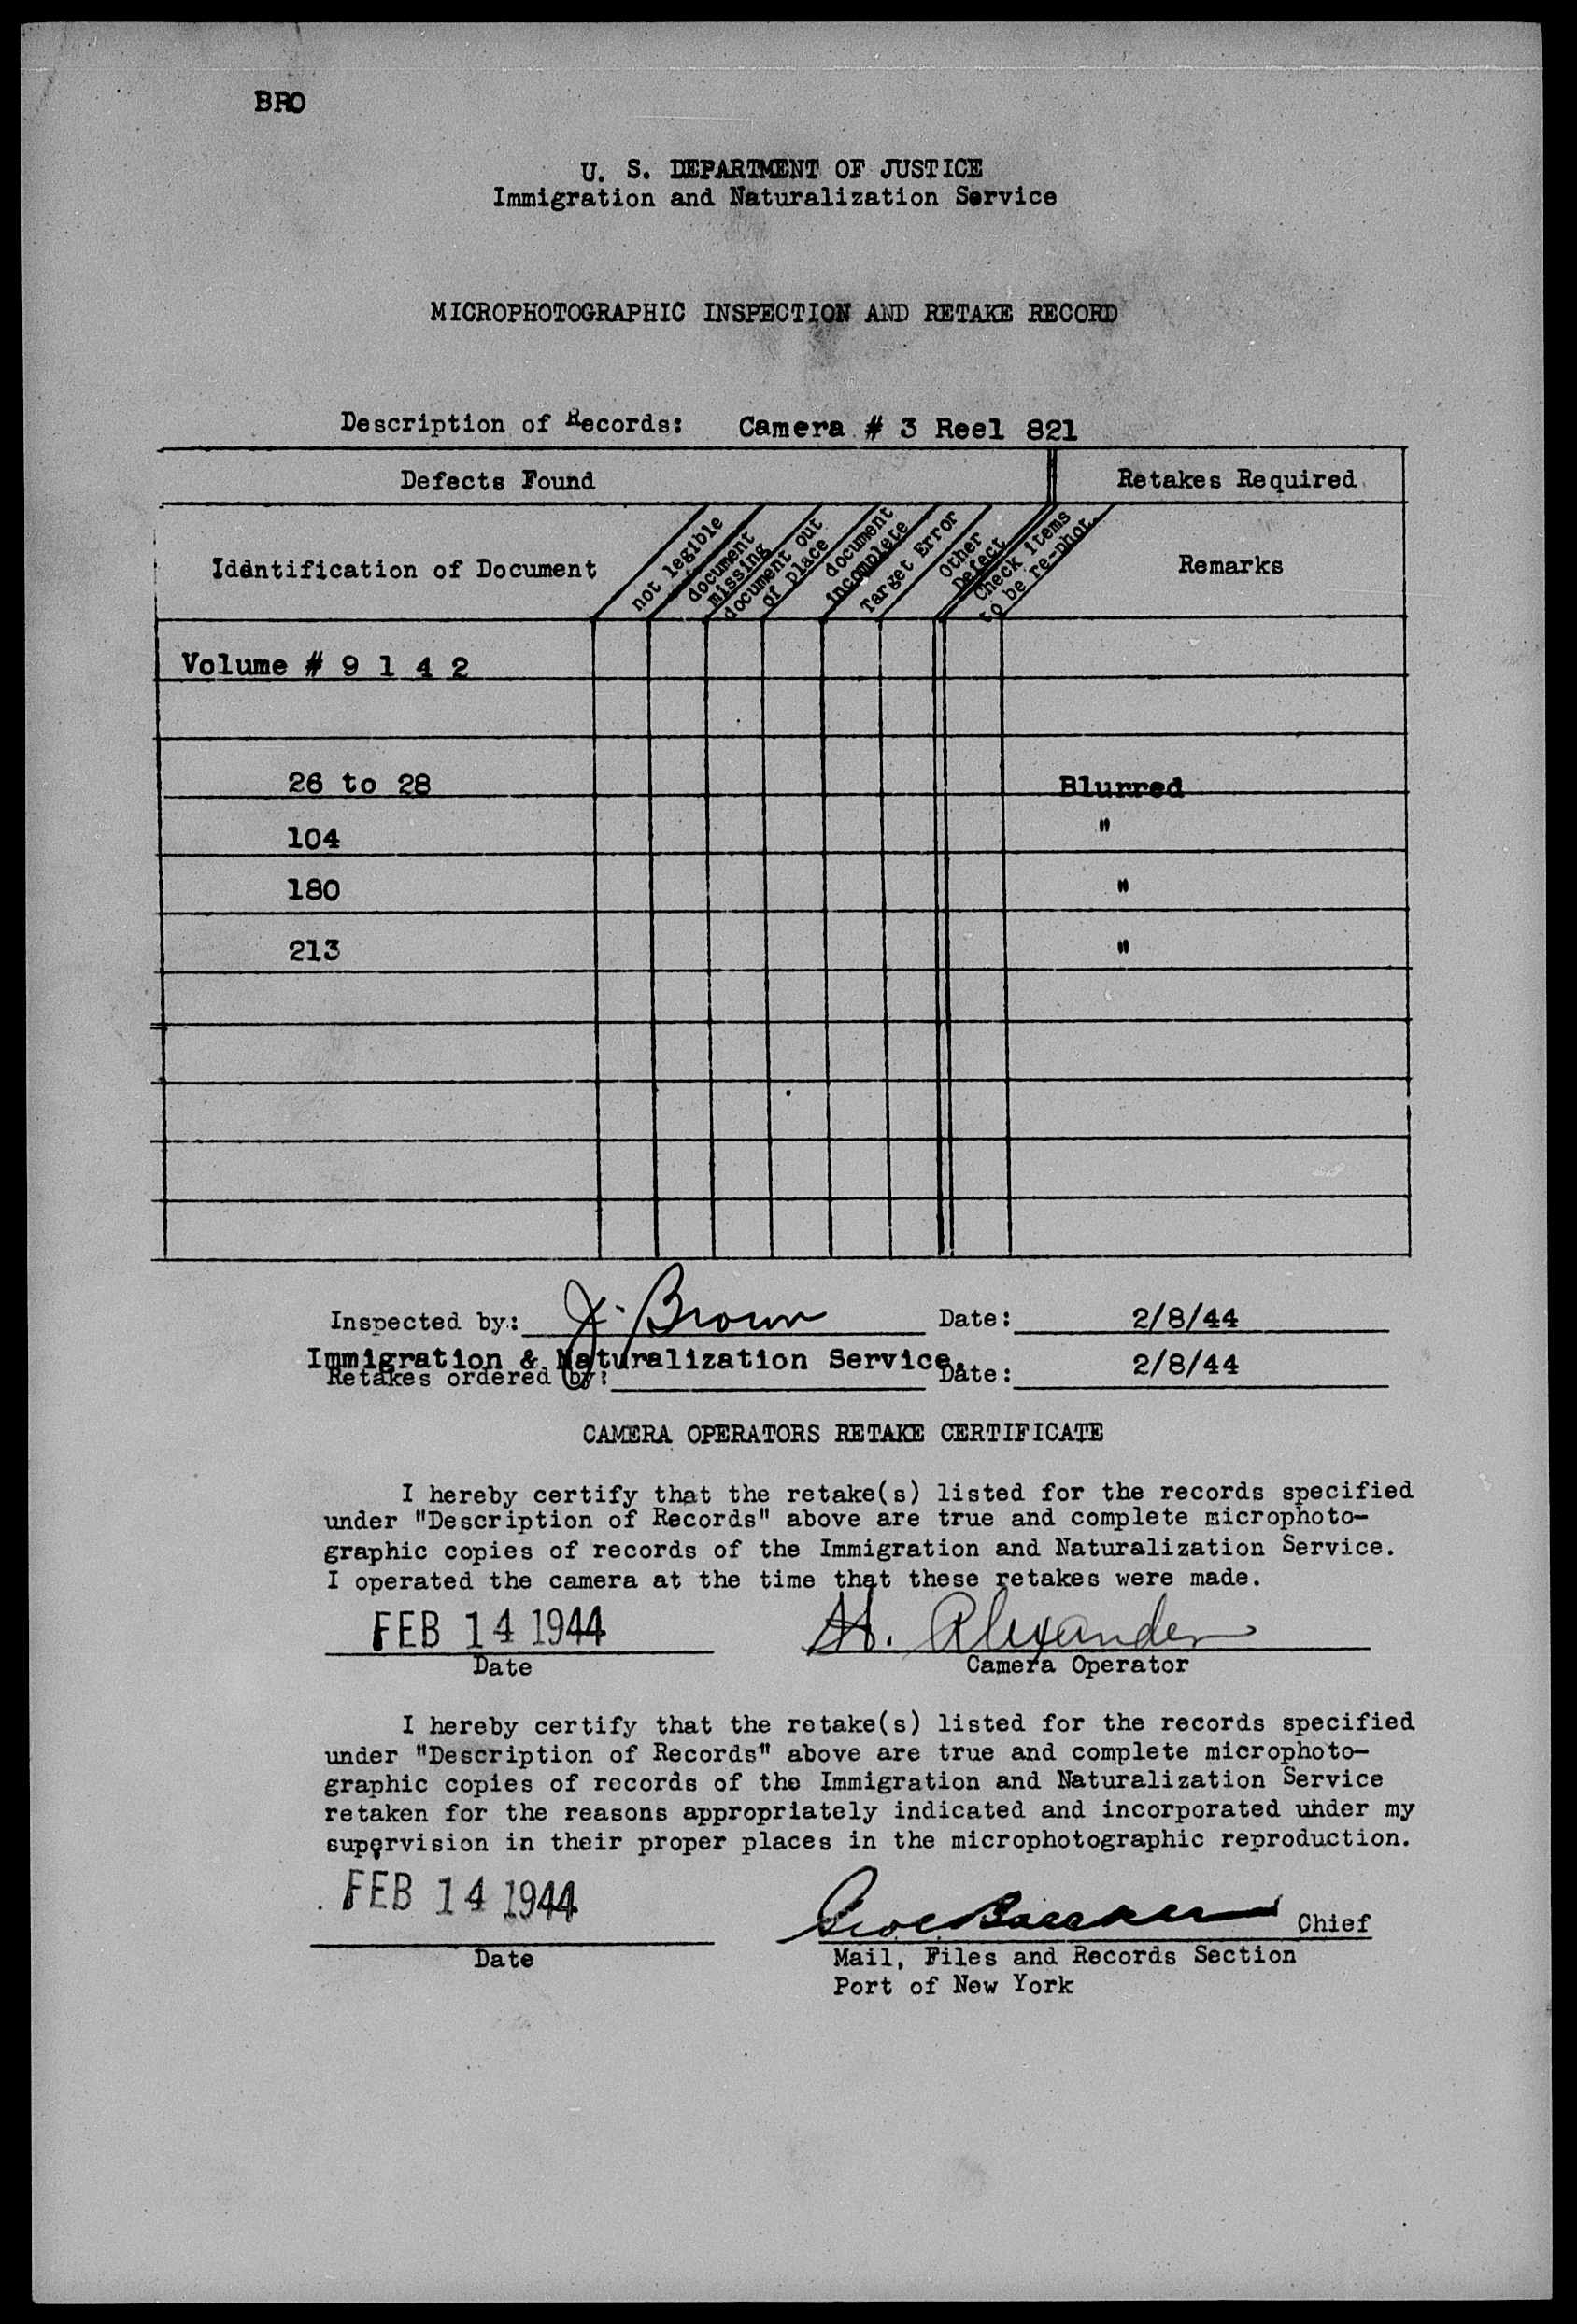 BRO
U. S. DEPARTMENT OF JUSTICE
Immigration and Naturalization Service
MICROPHOTOGRAPHIC INSPECTION AND RETAKE RECORD
Description of Records: Camera # 3 Reel 821
Defects Found Retakes Required
Identification of Document
not legible
document
missing
document out
of place
document
incomplete
Target Error
Other
Defect
Check items
to be re-phot.
Remarks
Volume # 9 1 4 2
26 to 28 Blurred
104 "
180 "
213 "
Inspected by: J. Brown Date: 2/8/44
Immigration & Naturalization Service.
Retakes ordered by: Date: 2/8/44
CAMERA OPERATORS RETAKE CERTIFICATE
I hereby certify that the retake(s) listed for the records specified
under "Description of Records" above are true and complete microphoto-
graphic copies of records of the Immigration and Naturalization Service.
I operated the camera at the time that these retakes were made.
FEB 14 1944 H. Alexander
Date Camera Operator
I hereby certify that the retake(s) listed for the records specified
under "Description of Records" above are true and complete microphoto-
graphic copies of records of the Immigration and Naturalization Service
retaken for the reasons appropriately indicated and incorporated under my
supervision in their proper places in the microphotographic reproduction.
FEB 14 1944 Chief
Date Mail, Files and Records Section
Port of New York